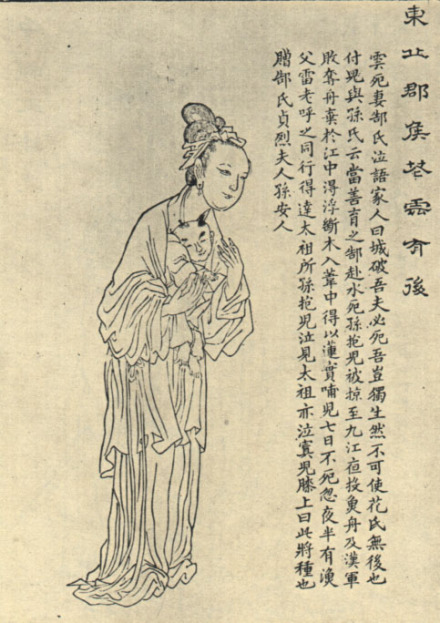 東丘郡侯花雲有後
雲死妻郜氏泣語家人曰城破吾夫必死吾豈獨生然不可使花氏無後也
付児與孫氏云當善育之郜赴水死孫抱児被掠至九江夜投魚舟及漢軍
敗奪舟棄於江中得浮斷木入葦中得以蓮實哺児七日不死忽夜半有漁
父雷老呼之同行得達太祖所孫抱児泣見太祖亦泣寘児膝上曰此將種也
贈郜氏貞烈夫人孫安人